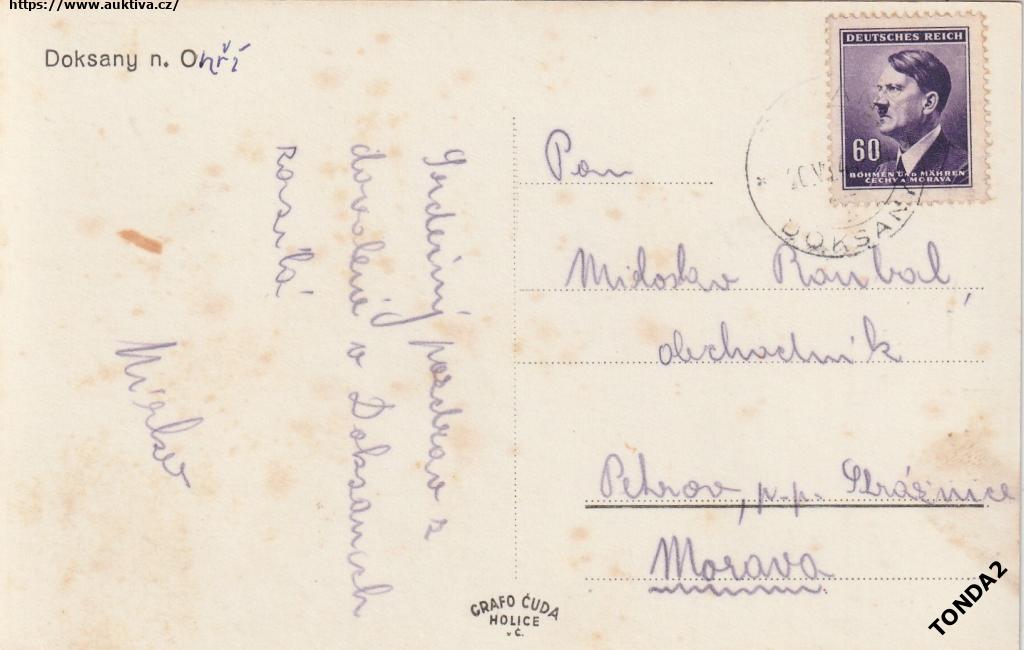 https://www.auktiva.cz/
Doksany n. Ohří
DEUTSCHES REICH
60
BÖHMEN UND MÄHREN
ČECHY A MORAVA
DOKSANY
Srdečný pozdrav z
dovolené v Doksanech
Pan
Miloslav
obchodník
Petrov, p.p. Strážnice
Morava
GRAFO ČUDA
HOLICE
v Č.
TONDA2